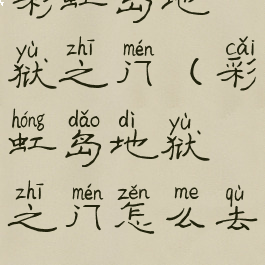 彩虹岛地
yù zhī mén cǎi
狱之门(彩
hóng dǎo dì yù
虹岛地狱
zhī mén zěn me qù
之门怎么去